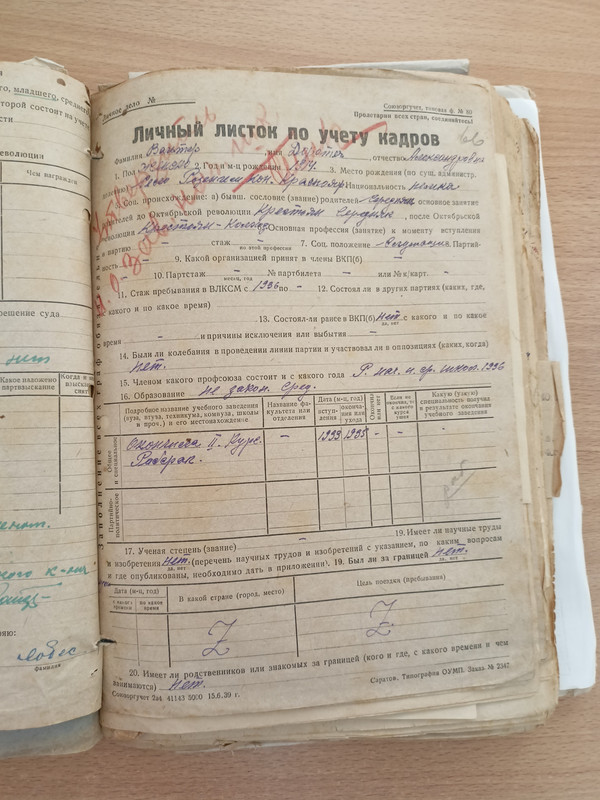 его, младшего, среднего
торой состоит на учете
сти
еволюция
Чем награжден
решение суда
нет
Какое наложено партвзыскание
Личное дело №
Союзоргучет, типовая ф. № 60
Пролетарии всех стран, соединяйтесь!
66
Личный листок по учету кадров
Фамилия Вальтер имя отчество Александровна
1. Пол женский 2. Год и м-ц рождения 1917. 3. Место рождения (по сущ. администр.
делению) Село Розенгейм кан. Краснояр Национальность немка
5. Соц. происхождение: а) бывш. сословие (звание) родителей основное занятие
родителей до Октябрьской революции крестьян Середняк, после Октябрьской
революции Крестьян-Колхоз Основная профессия (занятие) к моменту вступления
в партию — стаж — по этой профессии 7. Соц. положение Партий-
ность — 9. Какой организацией принят в члены ВКП(б) —
10. Партстаж — месяц, год № партбилета — или № к/карт. —
11. Стаж пребывания в ВЛКСМ с 1936 по — 12. Состоял ли в других партиях (каких, где,
с какого и по какое время)
13. Состоял-ли ранее в ВКП(б) нет да, нет с какого и по какое
время — и причины исключения или выбытия —
14. Были ли колебания в проведении линии партии и участвовал ли в оппозициях (каких, когда)
нет.
15. Членом какого профсоюза состоит и с какого года Р. нач. и ср. школ. 1936
16. Образование не закон. Сред.
Подробное название учебного заведения (вуза, втуза, техникума, комвуза, школы и проч.) и его местонахождение
Название факультета или отделения
Дата (м-ц, год)
вступления
окончания или ухода
Окончил или нет
Если не окончил, то с какого курса ушел
Какую (узкую) специальность получил в результате окончания учебного заведения
Общее и специальное
II. Курс. — 1933 1935 — —
Рабфак.
Партийно-политическое
17. Ученая степень (звание) — 19. Имеет ли научные труды
и изобретения нет. да, нет (перечень научных трудов и изобретений с указанием, по каким вопросам
и где опубликованы, необходимо дать в приложении). 19. Был ли за границей нет. да, нет
Дата (м-ц, год)
с какого времени
по какое время
В какой стране (город, место)
Цель поездки (пребывания)
Z Z
20. Имеет ли родственников или знакомых за границей (кого и где, с какого времени и чем
занимаются) Нет.
Союзоргучет 2а4 41143 5000 15.6.39 г.
Саратов. Типография ОУМП. Заказ № 2347
фамилия